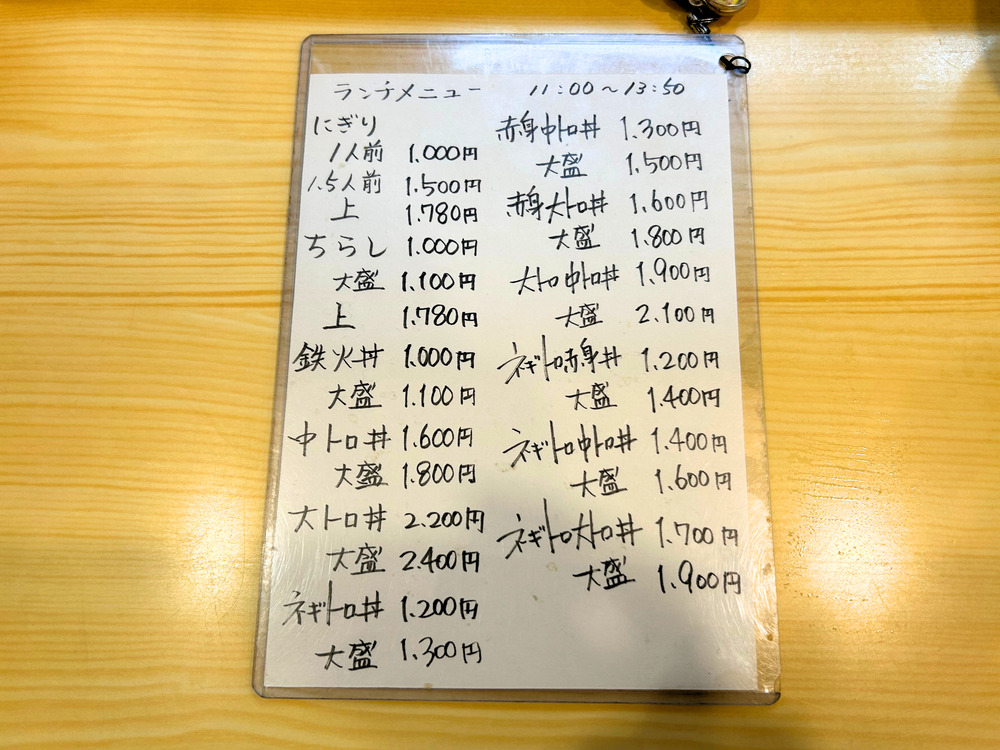 ランチメニュー 11:00～13:50
にぎり
1人前 1.000円
1.5人前 1.500円
上 1.780円
ちらし 1.000円
大盛 1.100円
上 1.780円
鉄火丼 1.000円
大盛 1.100円
中トロ丼 1.600円
大盛 1.800円
大トロ丼 2.200円
大盛 2.400円
ネギトロ丼 1.200円
大盛 1.300円
赤身中トロ丼 1.300円
大盛 1.500円
赤身大トロ丼 1.600円
大盛 1.800円
大トロ中トロ丼 1.900円
大盛 2.100円
ネギトロ赤身丼 1.200円
大盛 1.400円
ネギトロ中トロ丼 1.400円
大盛 1.600円
ネギトロ大トロ丼 1.700円
大盛 1.900円